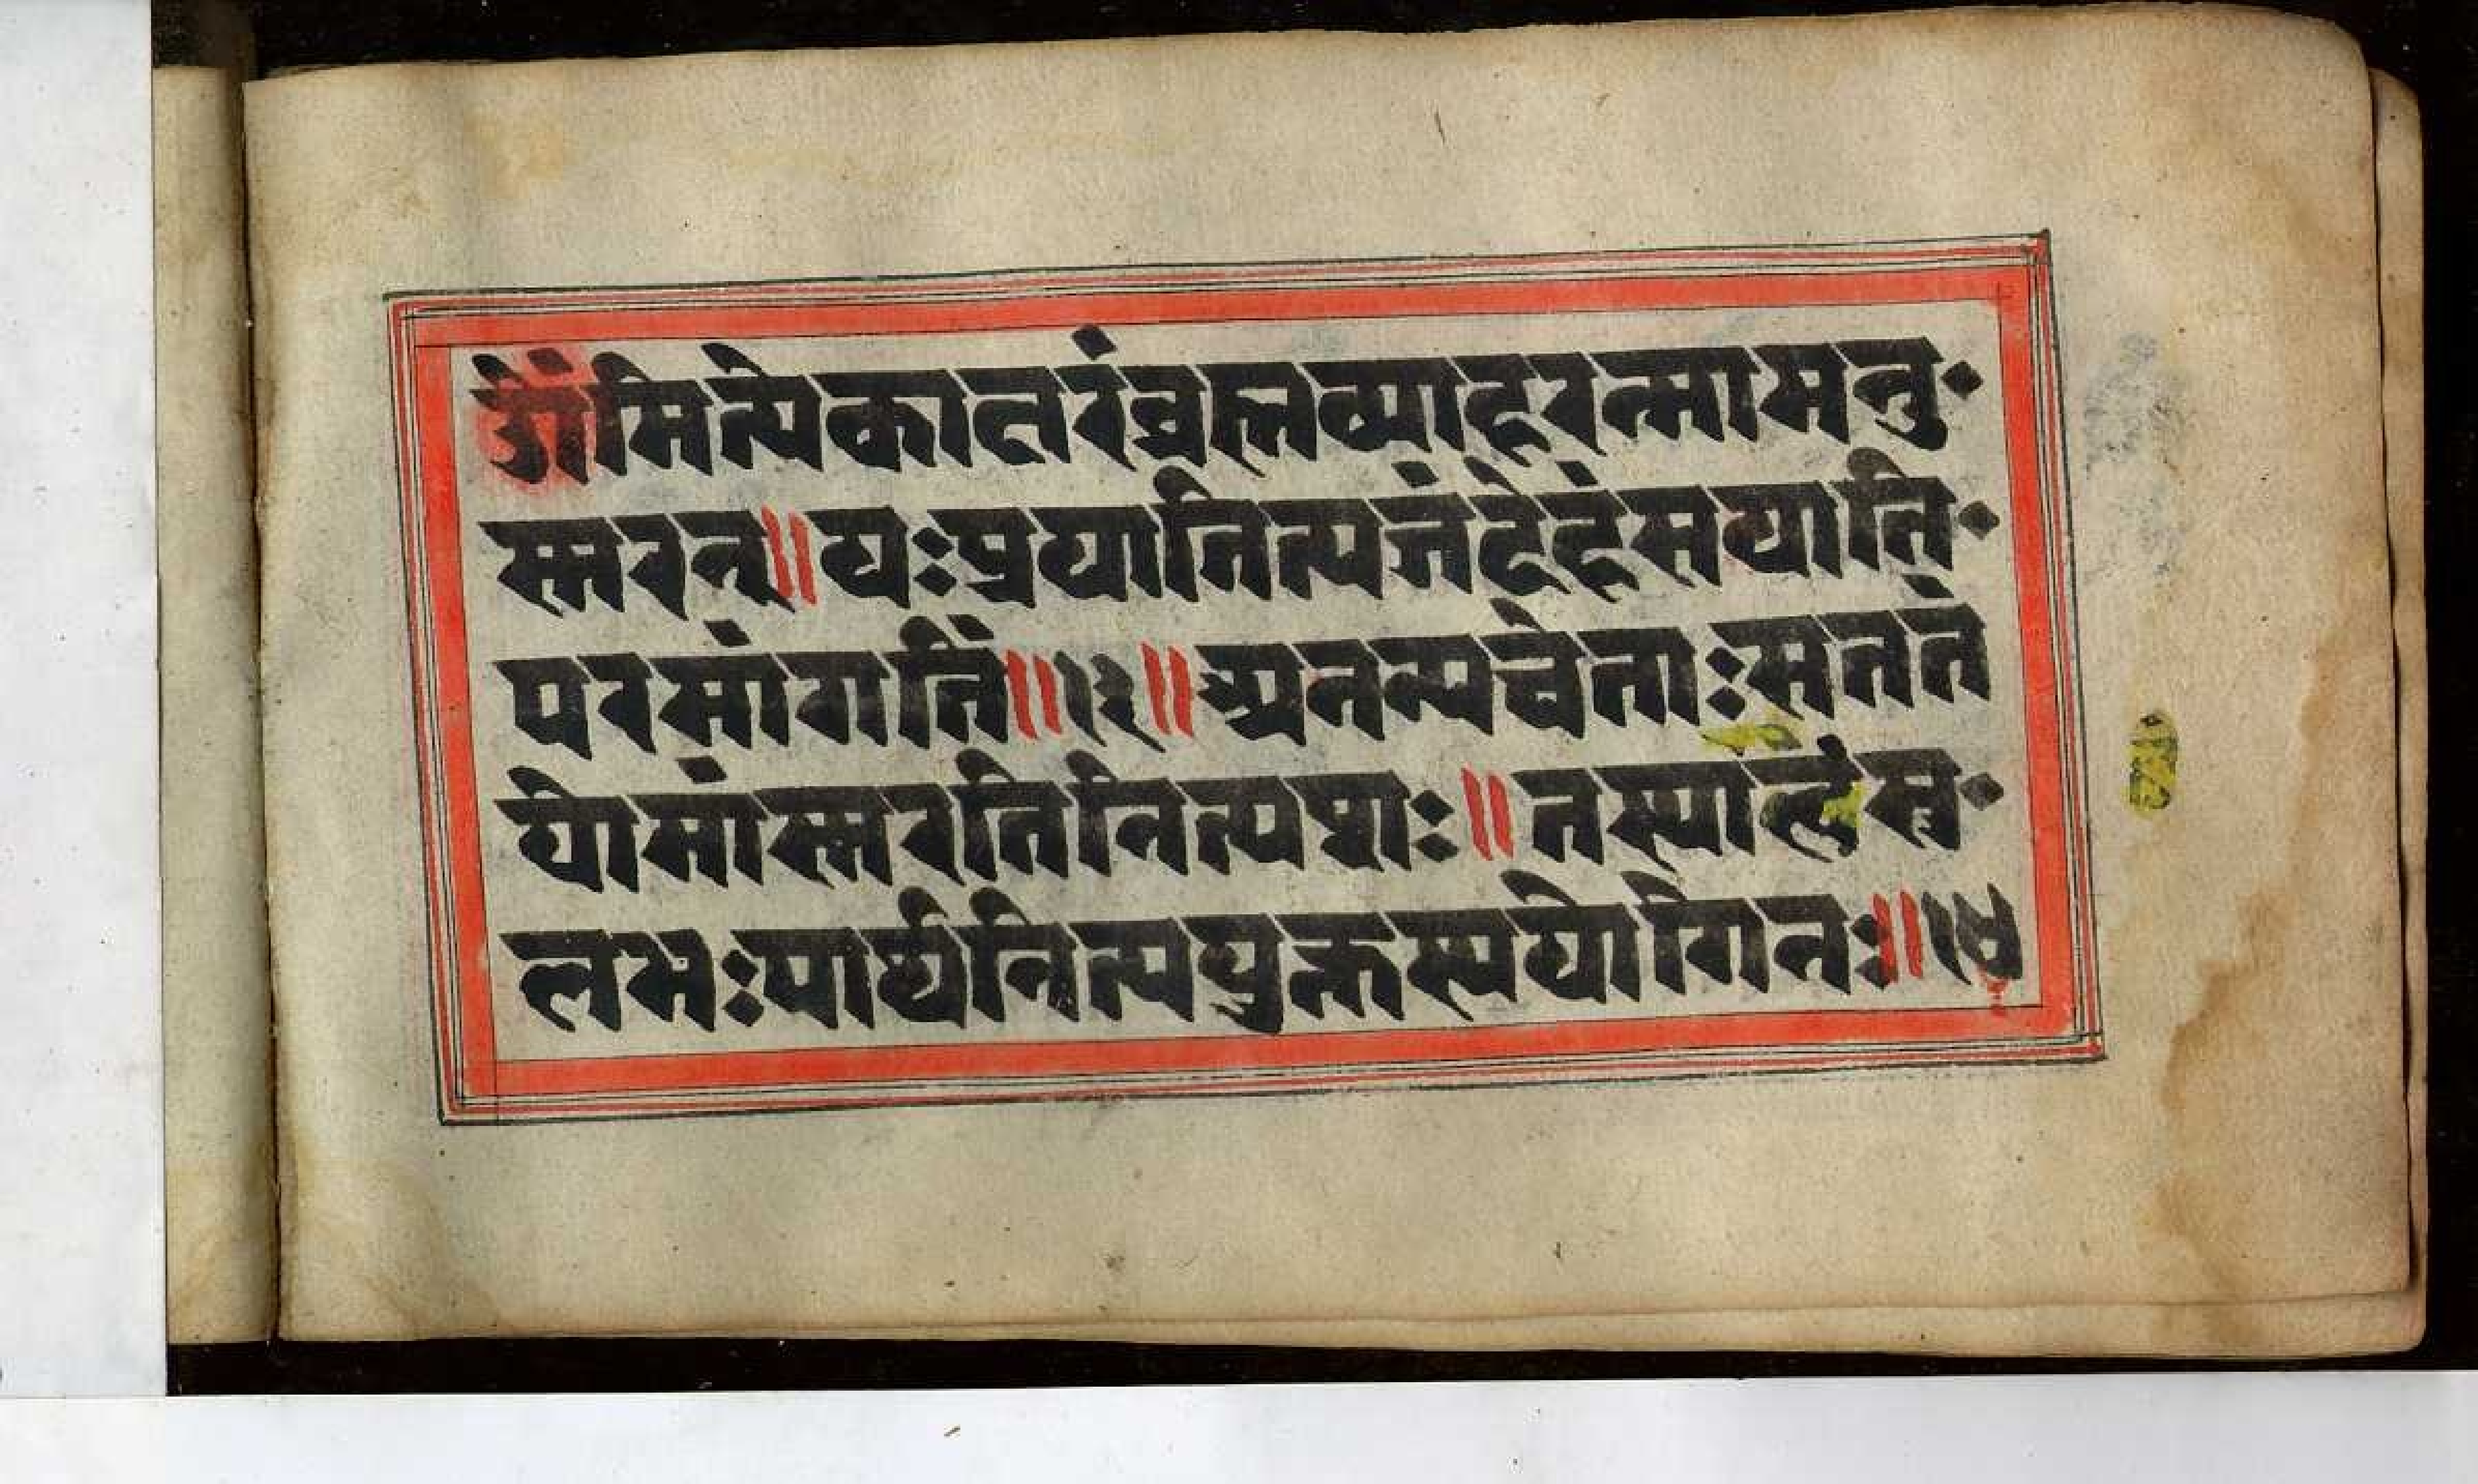 ॐमित्येकाक्षरंब्रह्मव्याहरन्मामनु·
स्मरन्॥यःप्रयातित्यजंदेहंसयाति·
परमांगतिं॥१३॥अनन्यचेताःसततं
योमांस्मरतिनित्यशः॥तस्याहंसु·
लभःपार्थनित्ययुक्तस्ययोगिनः॥१४